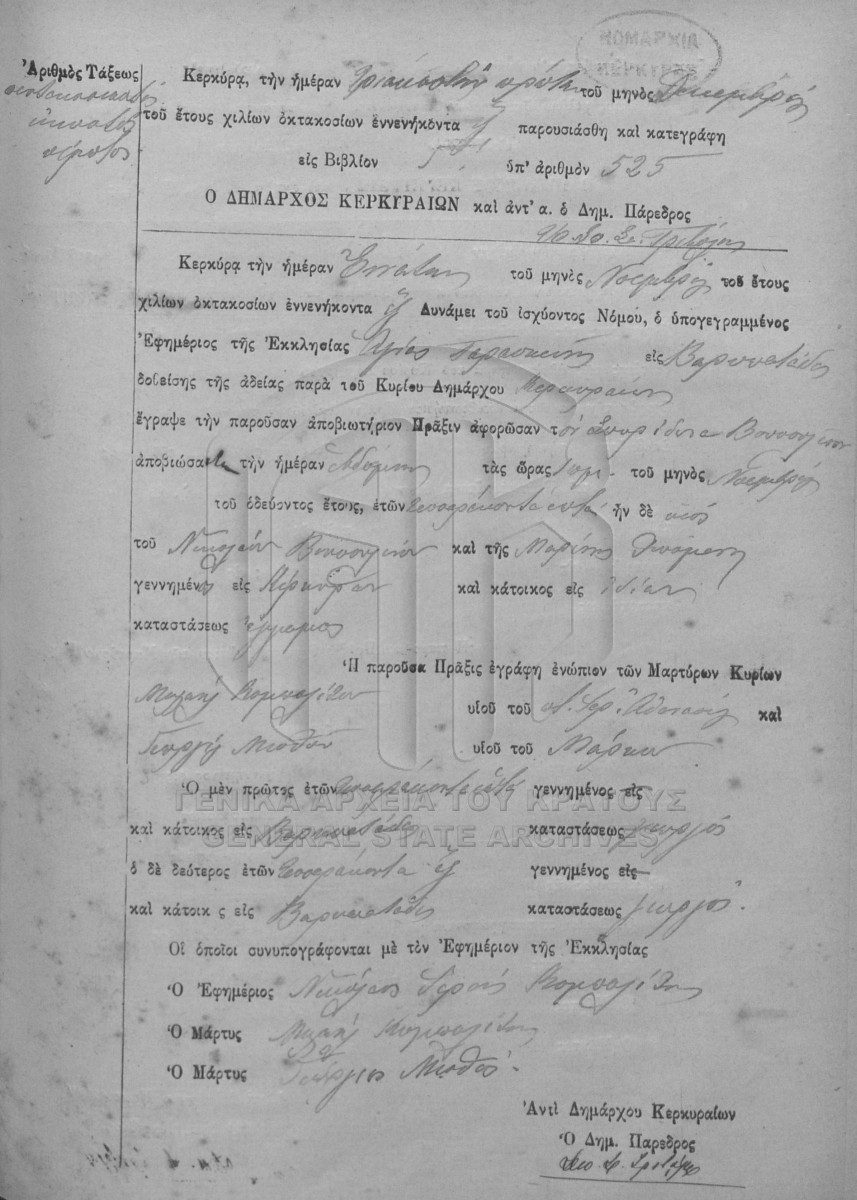 ΝΟΜΑΡΧΙΑ
ΚΕΡΚΥΡΑΣ
Ἀριθμὸς Τάξεως
πεντακοσιοστὸς
εἰκοστὸς
πέμπτος
Κερκύρᾳ, τὴν ἡμέραν τριακοστὴν πρώτην τοῦ μηνὸς Δεκεμβρίου
τοῦ ἔτους χιλίων ὀκτακοσίων ἐννενήκοντα ἕξ παρουσιάσθη καὶ κατεγράφη
εἰς Βιβλίον ὑπ' ἀριθμὸν 525
Ο ΔΗΜΑΡΧΟΣ ΚΕΡΚΥΡΑΙΩΝ καὶ ἀντ' α. ὁ Δημ. Πάρεδρος
Κερκύρᾳ τὴν ἡμέραν Ἐννάτην τοῦ μηνὸς Νοεμβρίου τοῦ ἔτους
χιλίων ὀκτακοσίων ἐννενήκοντα ἕξ Δυνάμει τοῦ ἰσχύοντος Νόμου, ὁ ὑπογεγραμμένος
Ἐφημέριος τῆς Ἐκκλησίας Ἁγίας Παρασκευῆς εἰς Βαρυπατάδες
δοθείσης τῆς ἀδείας παρὰ τοῦ Κυρίου Δημάρχου Κερκυραίων
ἔγραψε τὴν παροῦσαν ἀποβιωτήριον Πρᾶξιν ἀφορῶσαν τὸν Σπυρίδωνα
ἀποβιώσαντα τὴν ἡμέραν Ἑβδόμην τὰς ὥρας τοῦ μηνὸς Νοεμβρίου
τοῦ ὁδεύοντος ἔτους, ἐτῶν τεσσαράκοντα ἑπτὰ ἦν δὲ υἱὸς
τοῦ Νικολάου καὶ τῆς Μαρίνης
γεννημένος εἰς Κέρκυραν καὶ κάτοικος εἰς ἰδίαν
καταστάσεως ἔγγαμος
Ἡ παροῦσα Πρᾶξις ἐγράφη ἐνώπιον τῶν Μαρτύρων Κυρίων
Μιχαὴλ Κομπολίτου υἱοῦ τοῦ Ἀθανασίου καὶ
Γεωργίου υἱοῦ τοῦ Μάρκου
Ὁ μὲν πρῶτος ἐτῶν τεσσαράκοντα ὀκτὼ γεννημένος εἰς
καὶ κάτοικος εἰς Βαρυπατάδες καταστάσεως γεωργὸς
ὁ δὲ δεύτερος ἐτῶν τεσσαράκοντα ἕξ γεννημένος εἰς
καὶ κάτοικ ς εἰς Βαρυπατάδες καταστάσεως γεωργὸς.
Οἱ ὁποῖοι συνυπογράφονται μὲ τὸν Ἐφημέριον τῆς Ἐκκλησίας
Ὁ Ἐφημέριος Νικόλαος Ἱερεὺς Κομπολίτης
Ὁ Μάρτυς Μιχαὴλ Κομπολίτης
Ὁ Μάρτυς Γεώργιος
Ἀντὶ Δημάρχου Κερκυραίων
Ὁ Δημ. Παρεδρος
ΓΕΝΙΚΑ ΑΡΧΕΙΑ ΤΟΥ ΚΡΑΤΟΥΣ
GENERAL STATE ARCHIVES